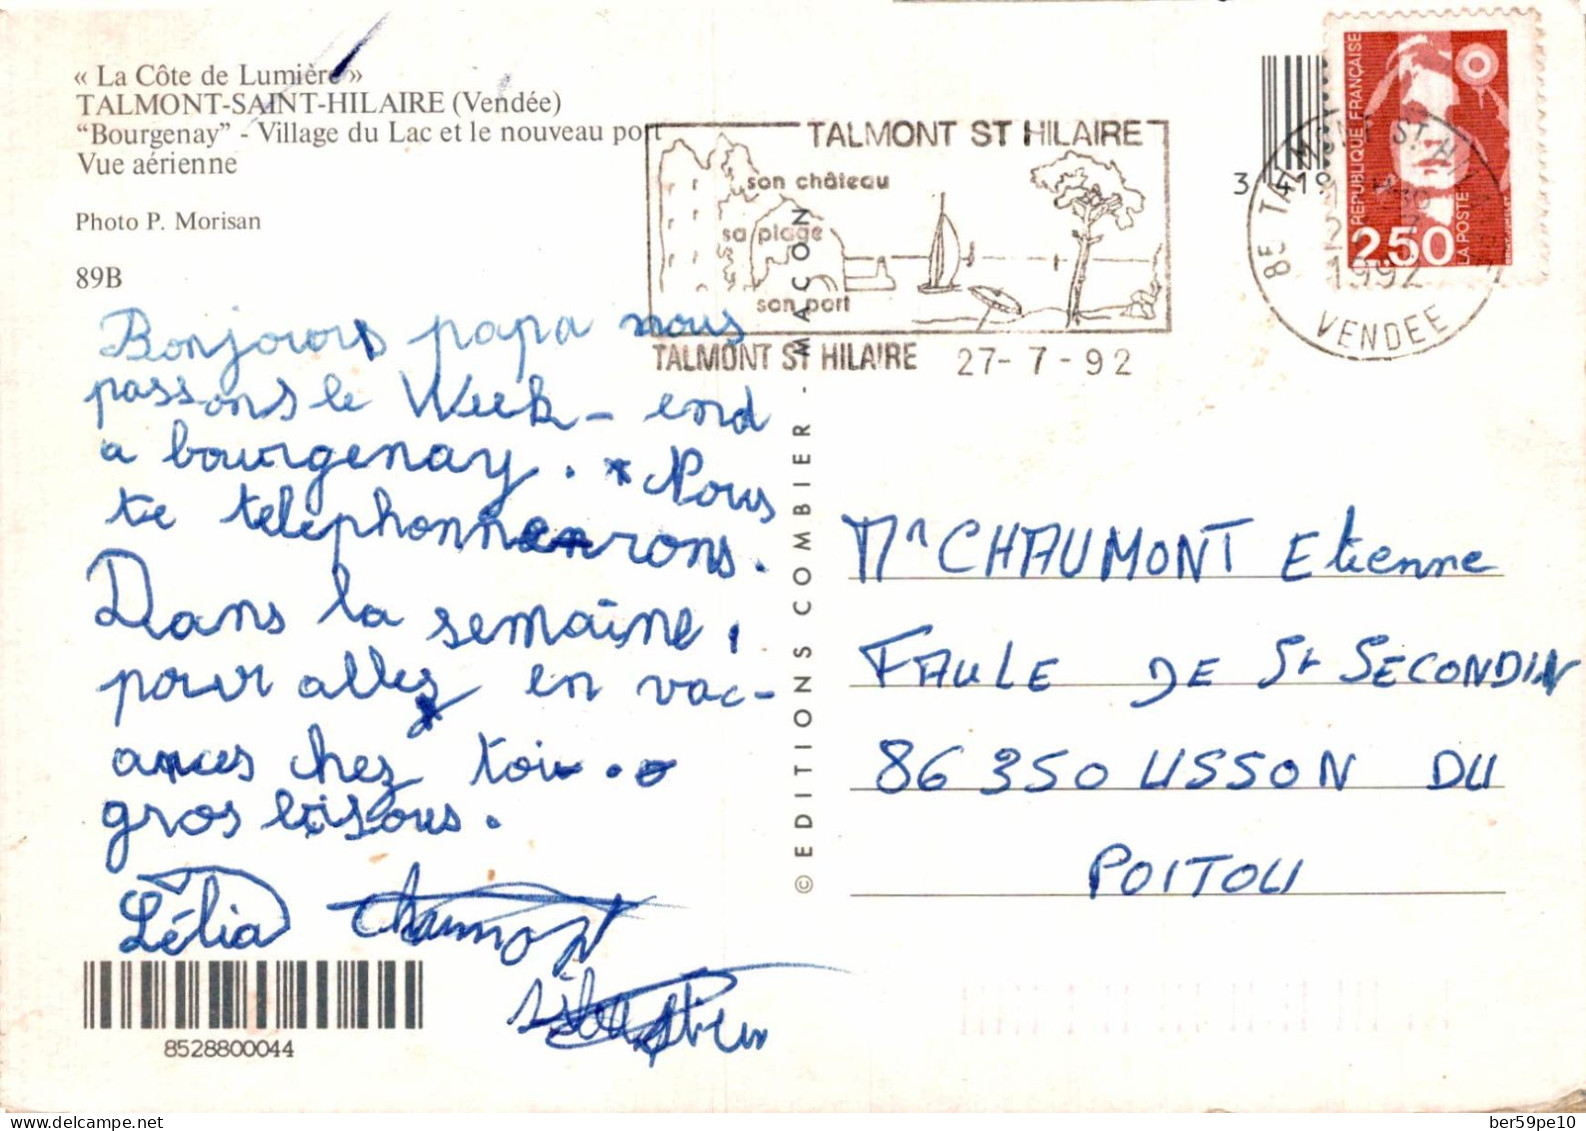 « La Côte de Lumière »
TALMONT-SAINT-HILAIRE (Vendée)
"Bourgenay" - Village du Lac et le nouveau port
Vue aérienne
Photo P. Morisan
89B
TALMONT ST HILAIRE
son château
sa plage
son port
TALMONT ST HILAIRE 27-7-92
85 TALMONT ST HILAIRE
1992
VENDEE
REPUBLIQUE FRANÇAISE
2,50
LA POSTE
3 419
Bonjours papa nous
passons le Week-end
a bourgenay. * Nous
te telephonnenrons.
Dans la semaine,
pour allez en vac-
ances chez toi.
gros bisous.
Lélia Chaumont
8528800044
© EDITIONS COMBIER - MACON
Mr CHAUMONT Etienne
FAULE DE St SECONDIN
86350 USSON DU
POITOU
delcampe.net
ber59pe10